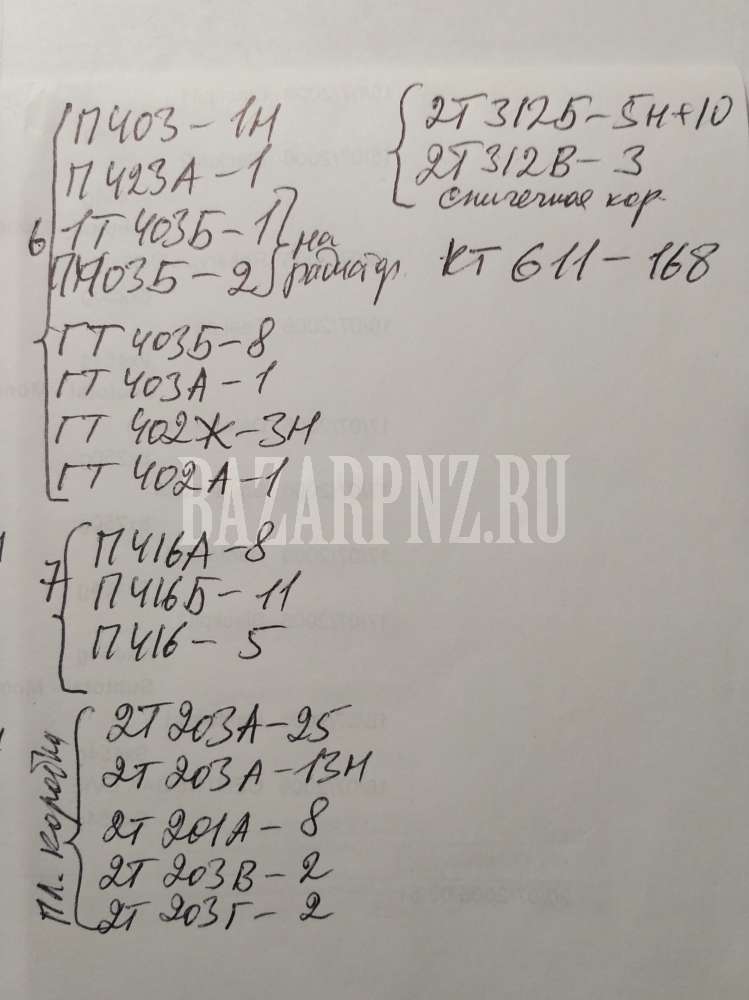 П403-1Н
П423А-1
6
1Т403Б-1
на
П403Б-2
ГТ 403Б-8
ГТ 403А-1
ГТ 402Ж-3Н
ГТ 402А-1
2Т312Б-5Н+10
2Т312В-3
спичечная кор.
КТ 611-168
BAZARPNZ.RU
7
П416А-8
П416Б-11
П416-5
Пл. коробка
2Т203А-25
2Т203А-13Н
2Т201А-8
2Т203В-2
2Т203Г-2